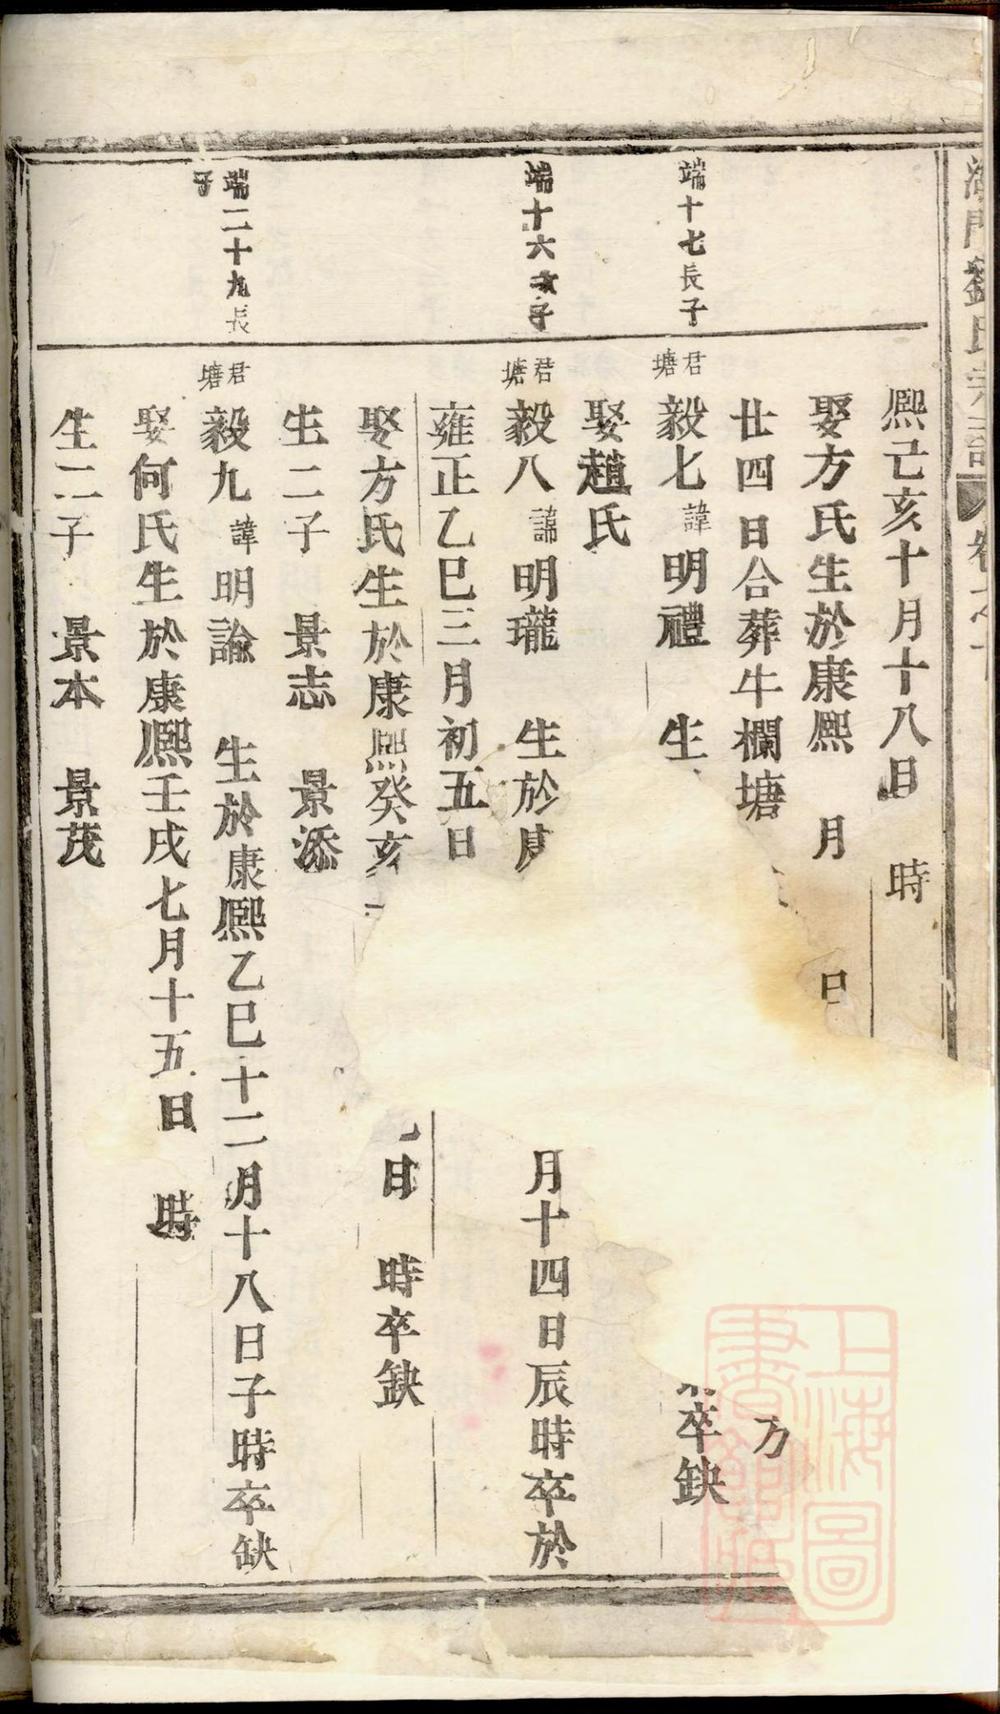 劉氏
熙己亥十月十八日 時
娶方氏生於康熙 月 日
廿四日合葬牛欄塘 方
端十七長子
君塘
毅七諱明禮 生 卒缺
娶趙氏
端十六次子
君塘
毅八諱明瓏 生於康 月十四日辰時卒於
雍正乙巳三月初五日
娶方氏生於康熙癸亥 日 時卒缺
生二子 景志 景添
端二十九長子
君塘
毅九諱明諭 生於康熙乙巳十二月十八日子時卒缺
娶何氏生於康熙壬戌七月十五日 時
生二子 景本 景茂
上海圖書館藏